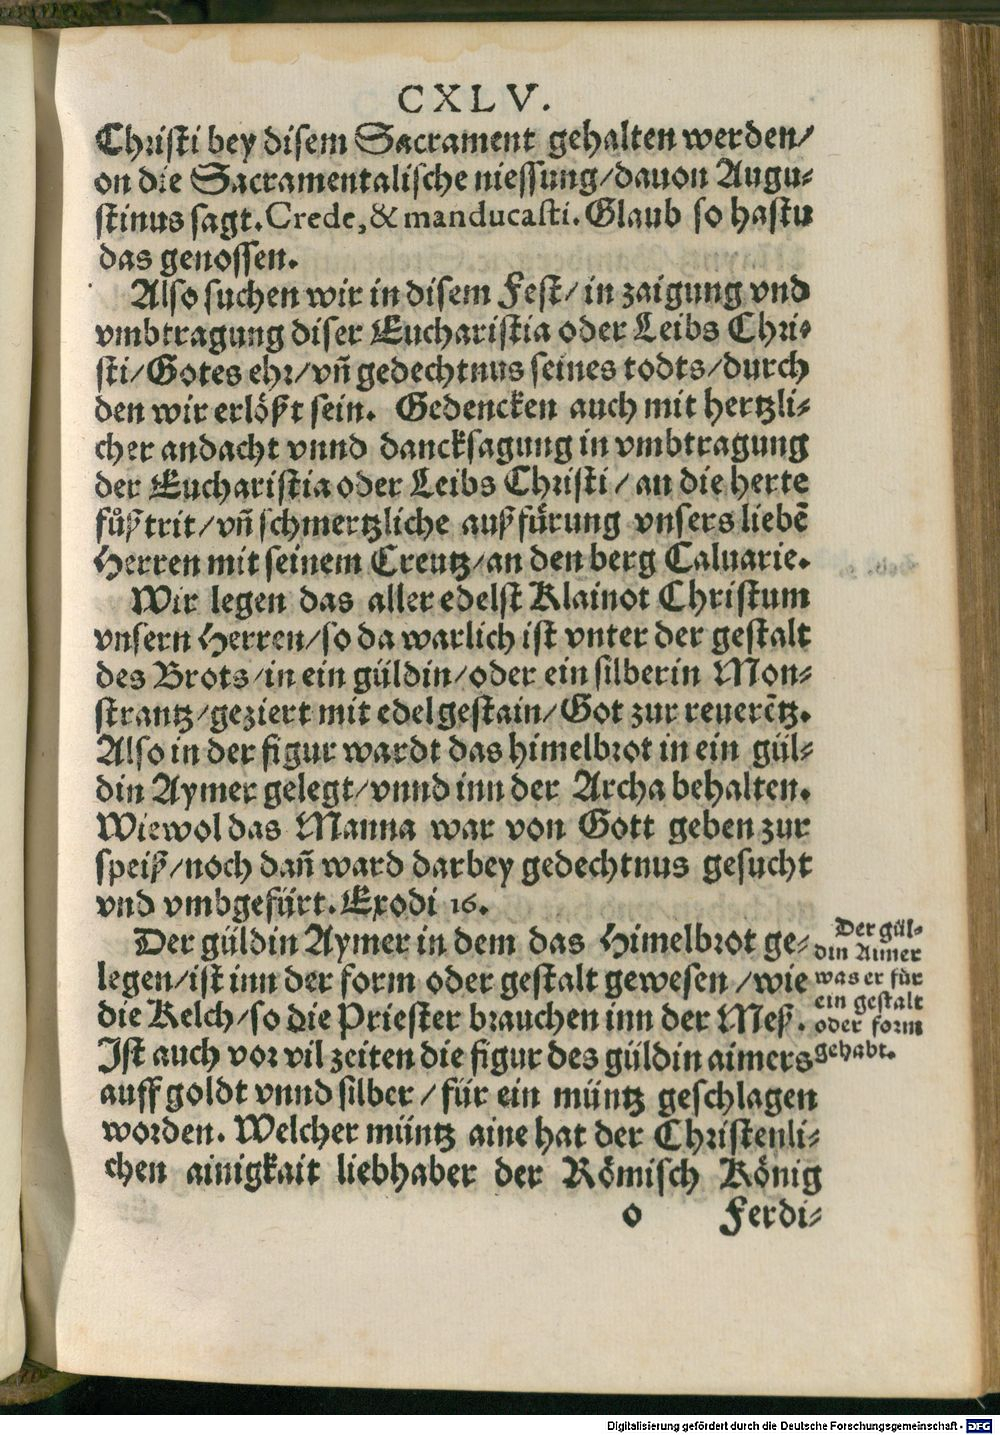 CXLV.
Christi bey disem Sacrament gehalten werden/
on die Sacramentalische niessung/dauon Augu-
stinus sagt. Crede, & manducasti. Glaub so hastu
das genossen.
Also suchen wir in disem Fest/in zaigung vnd
vmbtragung diser Eucharistia oder Leibs Chri-
sti/Gotes ehr/vñ gedechtnus seines todts/durch
den wir erlößt sein. Gedencken auch mit hertzli-
cher andacht vnnd dancksagung in vmbtragung
der Eucharistia oder Leibs Christi/an die herte
fůßtrit/vñ schmertzliche außfürung vnsers liebē
Herren mit seinem Creutz/an den berg Caluarie.
Wir legen das aller edelst Klainot Christum
vnsern Herren/so da warlich ist vnter der gestalt
des Brots/in ein güldin/oder ein silberin Mon-
strantz/geziert mit edelgestain/Got zur reuerētz.
Also in der figur wardt das himelbrot in ein gül-
din Aymer gelegt/vnnd inn der Archa behalten.
Wiewol das Manna war von Gott geben zur
speiß/noch dañ ward darbey gedechtnus gesucht
vnd vmbgefürt. Exodi 16.
Der güldin Aymer in dem das Himelbrot ge-
legen/ist inn der form oder gestalt gewesen/wie
die Kelch/so die Priester brauchen inn der Meß.
Ist auch vor vil zeiten die figur des güldin aimers
auff goldt vnnd silber/für ein müntz geschlagen
worden. Welcher müntz aine hat der Christenli-
chen ainigkait liebhaber der Römisch König
o Ferdi-
Der gül-
din Aimer
was er für
ein gestalt
oder form
gehabt.
Digitalisierung gefördert durch die Deutsche Forschungsgemeinschaft - DFG